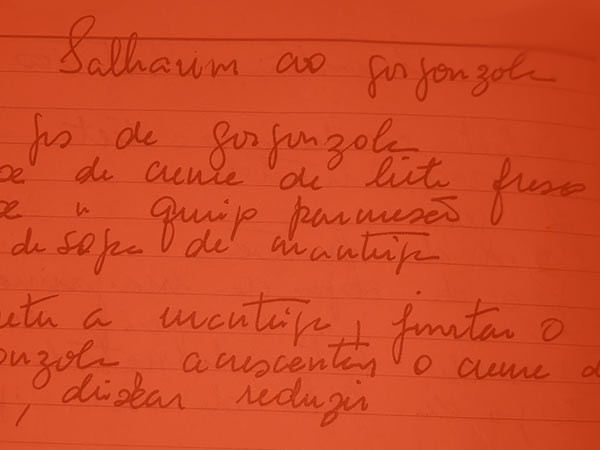 Salharim ao gorgonzola
grs de gorgonzola
de creme de leite fresco
" queijo parmesão
de sopa de manteiga
a manteiga, juntar o
onzola acrescentar o creme d
, deixar reduzir